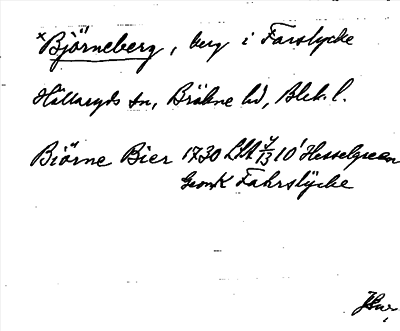 *Björneberg, berg i Farslycke
Hällaryds sn, Bräkne hd, Blek. l.
Biörne Bier 1730 LSA 13 10' Hesselgreen
Geomk Fahrslÿcke